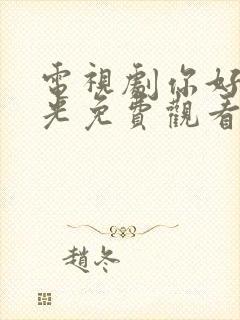 電視劇你好
光免費觀看
趙冬